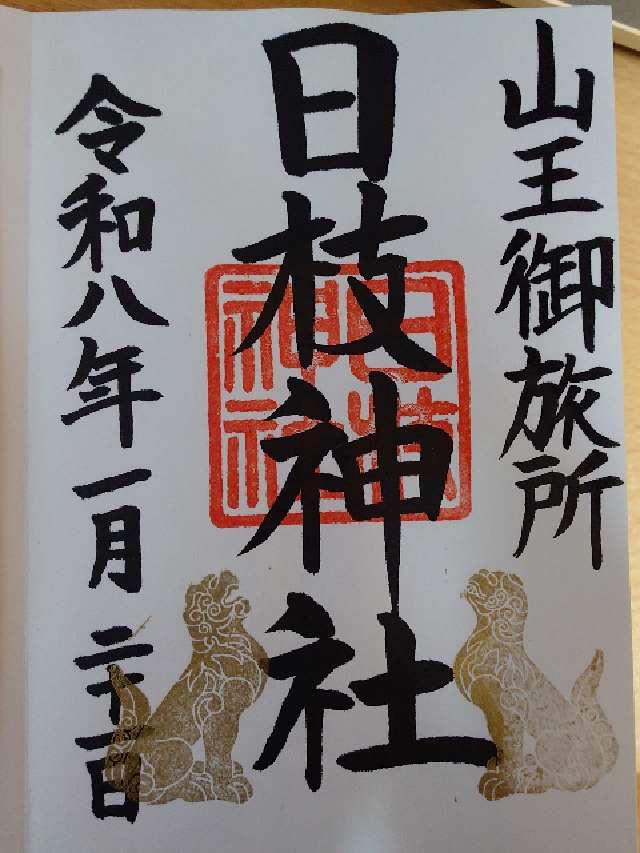 山王御旅所
日枝神社
令和八年一月二十一日
日枝
神社